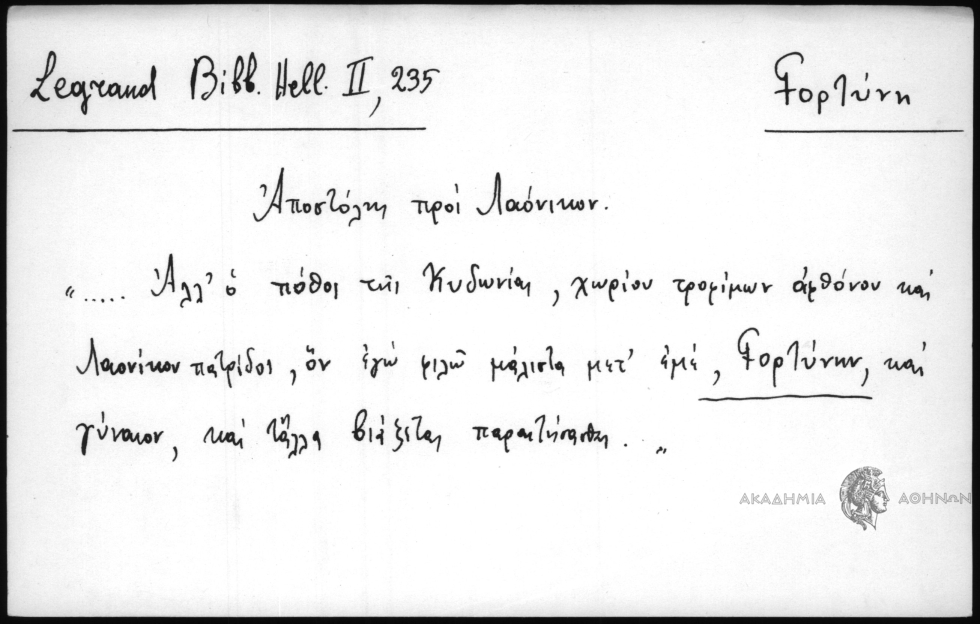 Legrand Bibl. Hell. II, 235
Γορτύνη
Ἀποστόλης πρὸς Λαόνικον.
"..... Ἀλλ' ὁ πόθος τῆς Κυδωνίας, χωρίου τροφίμων ἀφθόνου καὶ
Λαονίκου πατρίδος, ὃν ἐγὼ φιλῶ μάλιστα μετ' ἐμέ, Γορτύνην, καὶ
γύναιον, καὶ τἆλλα βιάζεται παραιτήσασθαι. "
ΑΚΑΔΗΜΙΑ ΑΘΗΝΩΝ